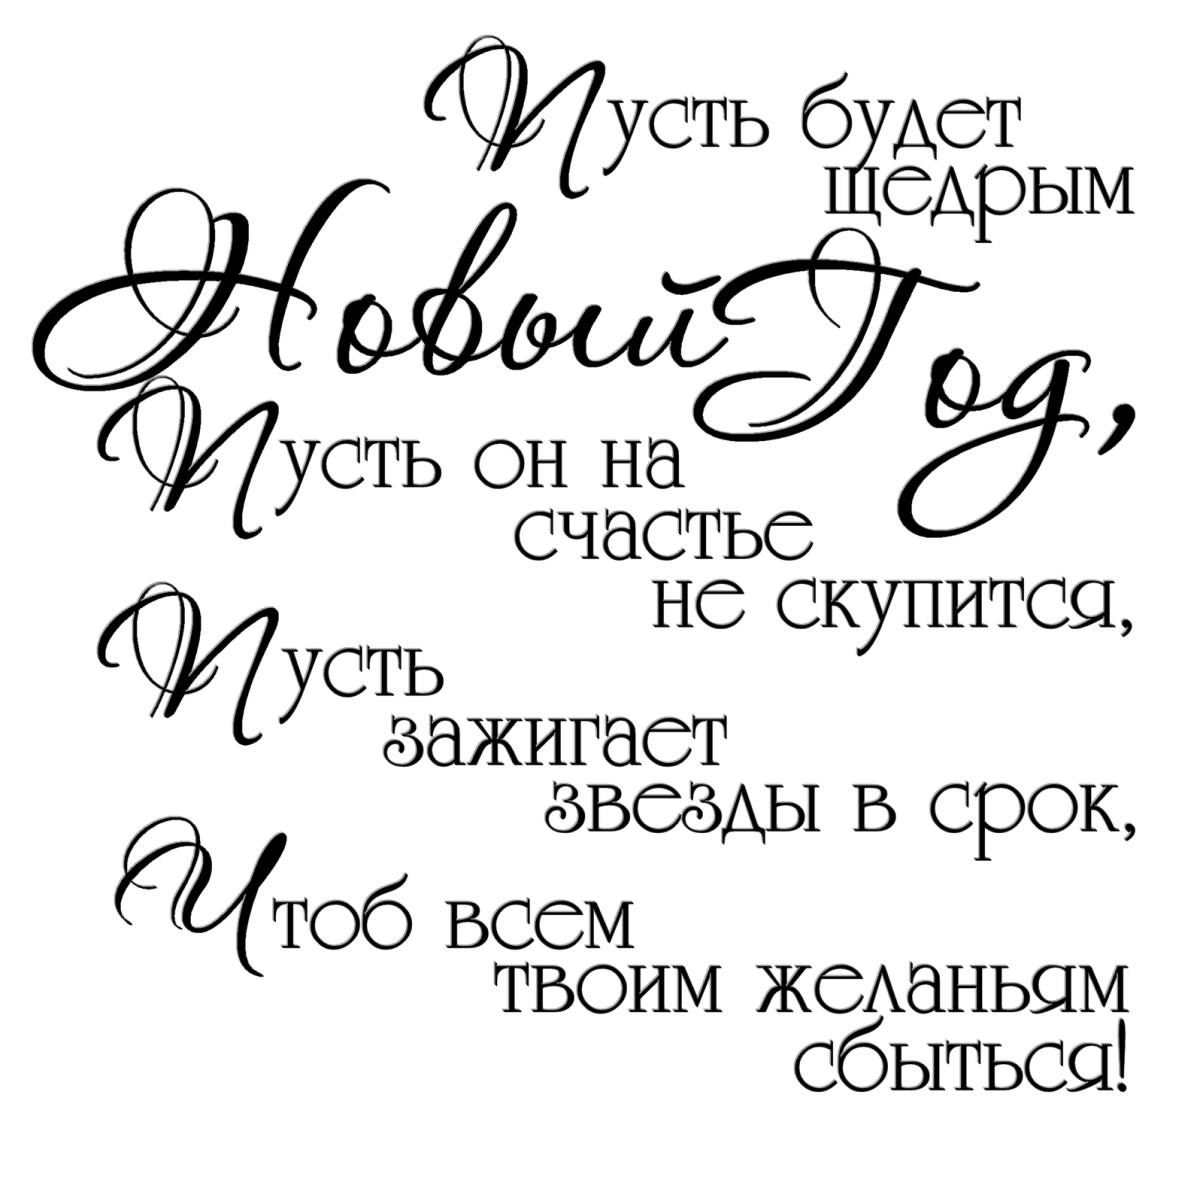 Пусть будет
щедрым
Новый Год,
Пусть он на
счастье
не скупится,
Пусть
зажигает
звезды в срок,
Чтоб всем
твоим желаньям
сбыться!